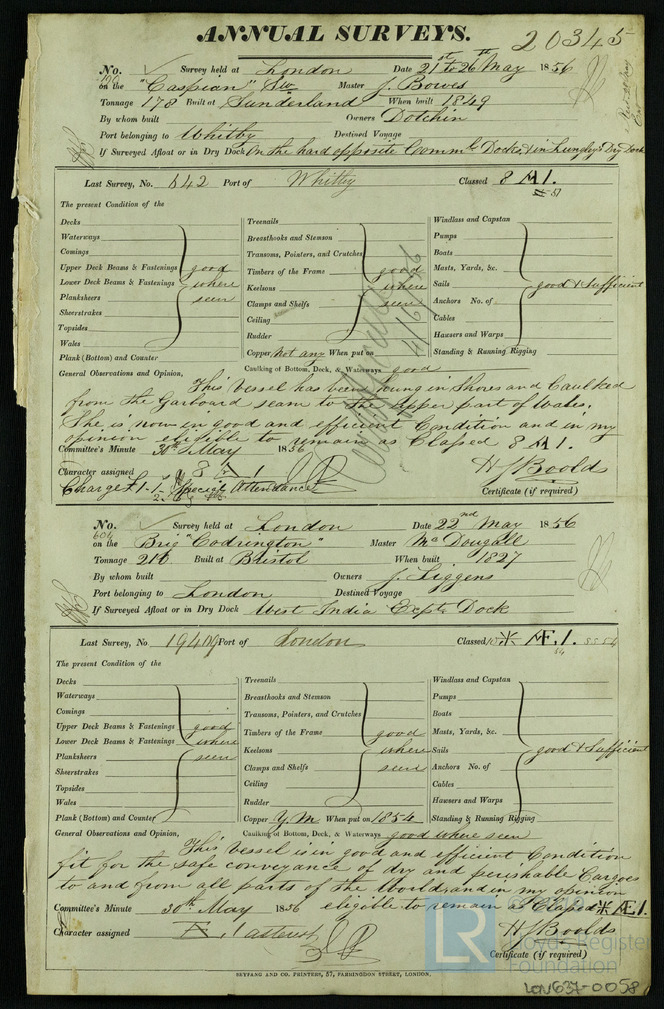 ANNUAL SURVEYS.
20345
No. Survey held at London Date 21st to 26th May 1856
on the "Caspian" Sw Master J. Bowes
Tonnage 178 Built at Sunderland When built 1849
By whom built Owners Dotchin
Port belonging to Whitby Destined Voyage
If Surveyed Afloat or in Dry Dock On the hard opposite Commcl Docks, & in Lungley's Dry Dock
Last Survey, No. 642 Port of Whitby Classed 8 Æ 1.
57
The present Condition of the
Decks Treenails Windlass and Capstan
Waterways Breasthooks and Stemson Pumps
Comings Transoms, Pointers, and Crutches Boats
Upper Deck Beams & Fastenings good Timbers of the Frame good Masts, Yards, &c.
Lower Deck Beams & Fastenings where Keelsons where Sails good & Sufficient
Planksheers seen Clamps and Shelfs seen Anchors No. of
Sheerstrakes Ceiling Cables
Topsides Rudder Hawsers and Warps
Wales Copper Not any When put on Standing & Running Rigging
Plank (Bottom) and Counter Caulking of Bottom, Deck, & Waterways good
4/6/56
General Observations and Opinion, This Vessel has been hung in Shores and Caulked
from the Garboard seam to the upper part of Wales.
She is now in good and efficient Condition and in my
opinion eligible to remain as Classed 8 Æ 1.
Committee's Minute 30th May 1856
Character assigned 8 Æ 1 H J Boolds
Charge £1.1. Special Attendance Certificate (if required)
No. Survey held at London Date 22nd May 1856
606
on the Brig "Codrington" Master McDougall
Tonnage 216 Built at Bristol When built 1827
By whom built Owners J. Liggens
Port belonging to London Destined Voyage
If Surveyed Afloat or in Dry Dock West India Expt. Dock
Last Survey, No. 19409 Port of London Classed Æ. 1.
54
The present Condition of the
Decks Treenails Windlass and Capstan
Waterways Breasthooks and Stemson Pumps
Comings Transoms, Pointers, and Crutches Boats
Upper Deck Beams & Fastenings good Timbers of the Frame good Masts, Yards, &c.
Lower Deck Beams & Fastenings where Keelsons where Sails good & Sufficient
Planksheers seen Clamps and Shelfs seen Anchors No. of
Sheerstrakes Ceiling Cables
Topsides Rudder Hawsers and Warps
Wales Copper Y.M. When put on 1854 Standing & Running Rigging
Plank (Bottom) and Counter Caulking of Bottom, Deck, & Waterways good where seen
General Observations and Opinion, This Vessel is in good and efficient Condition
fit for the safe conveyance of dry and perishable Cargoes
to and from all parts of the World, and in my opinion
Committee's Minute 30th May 1856 eligible to remain as Classed Æ 1.
Character assigned Æ 1 H J Boolds
Certificate (if required)
SEYFANG AND CO. PRINTERS, 57, FARRINGDON STREET, LONDON.
LR © 2019
Lloyd's Register
Foundation
LON637-0058